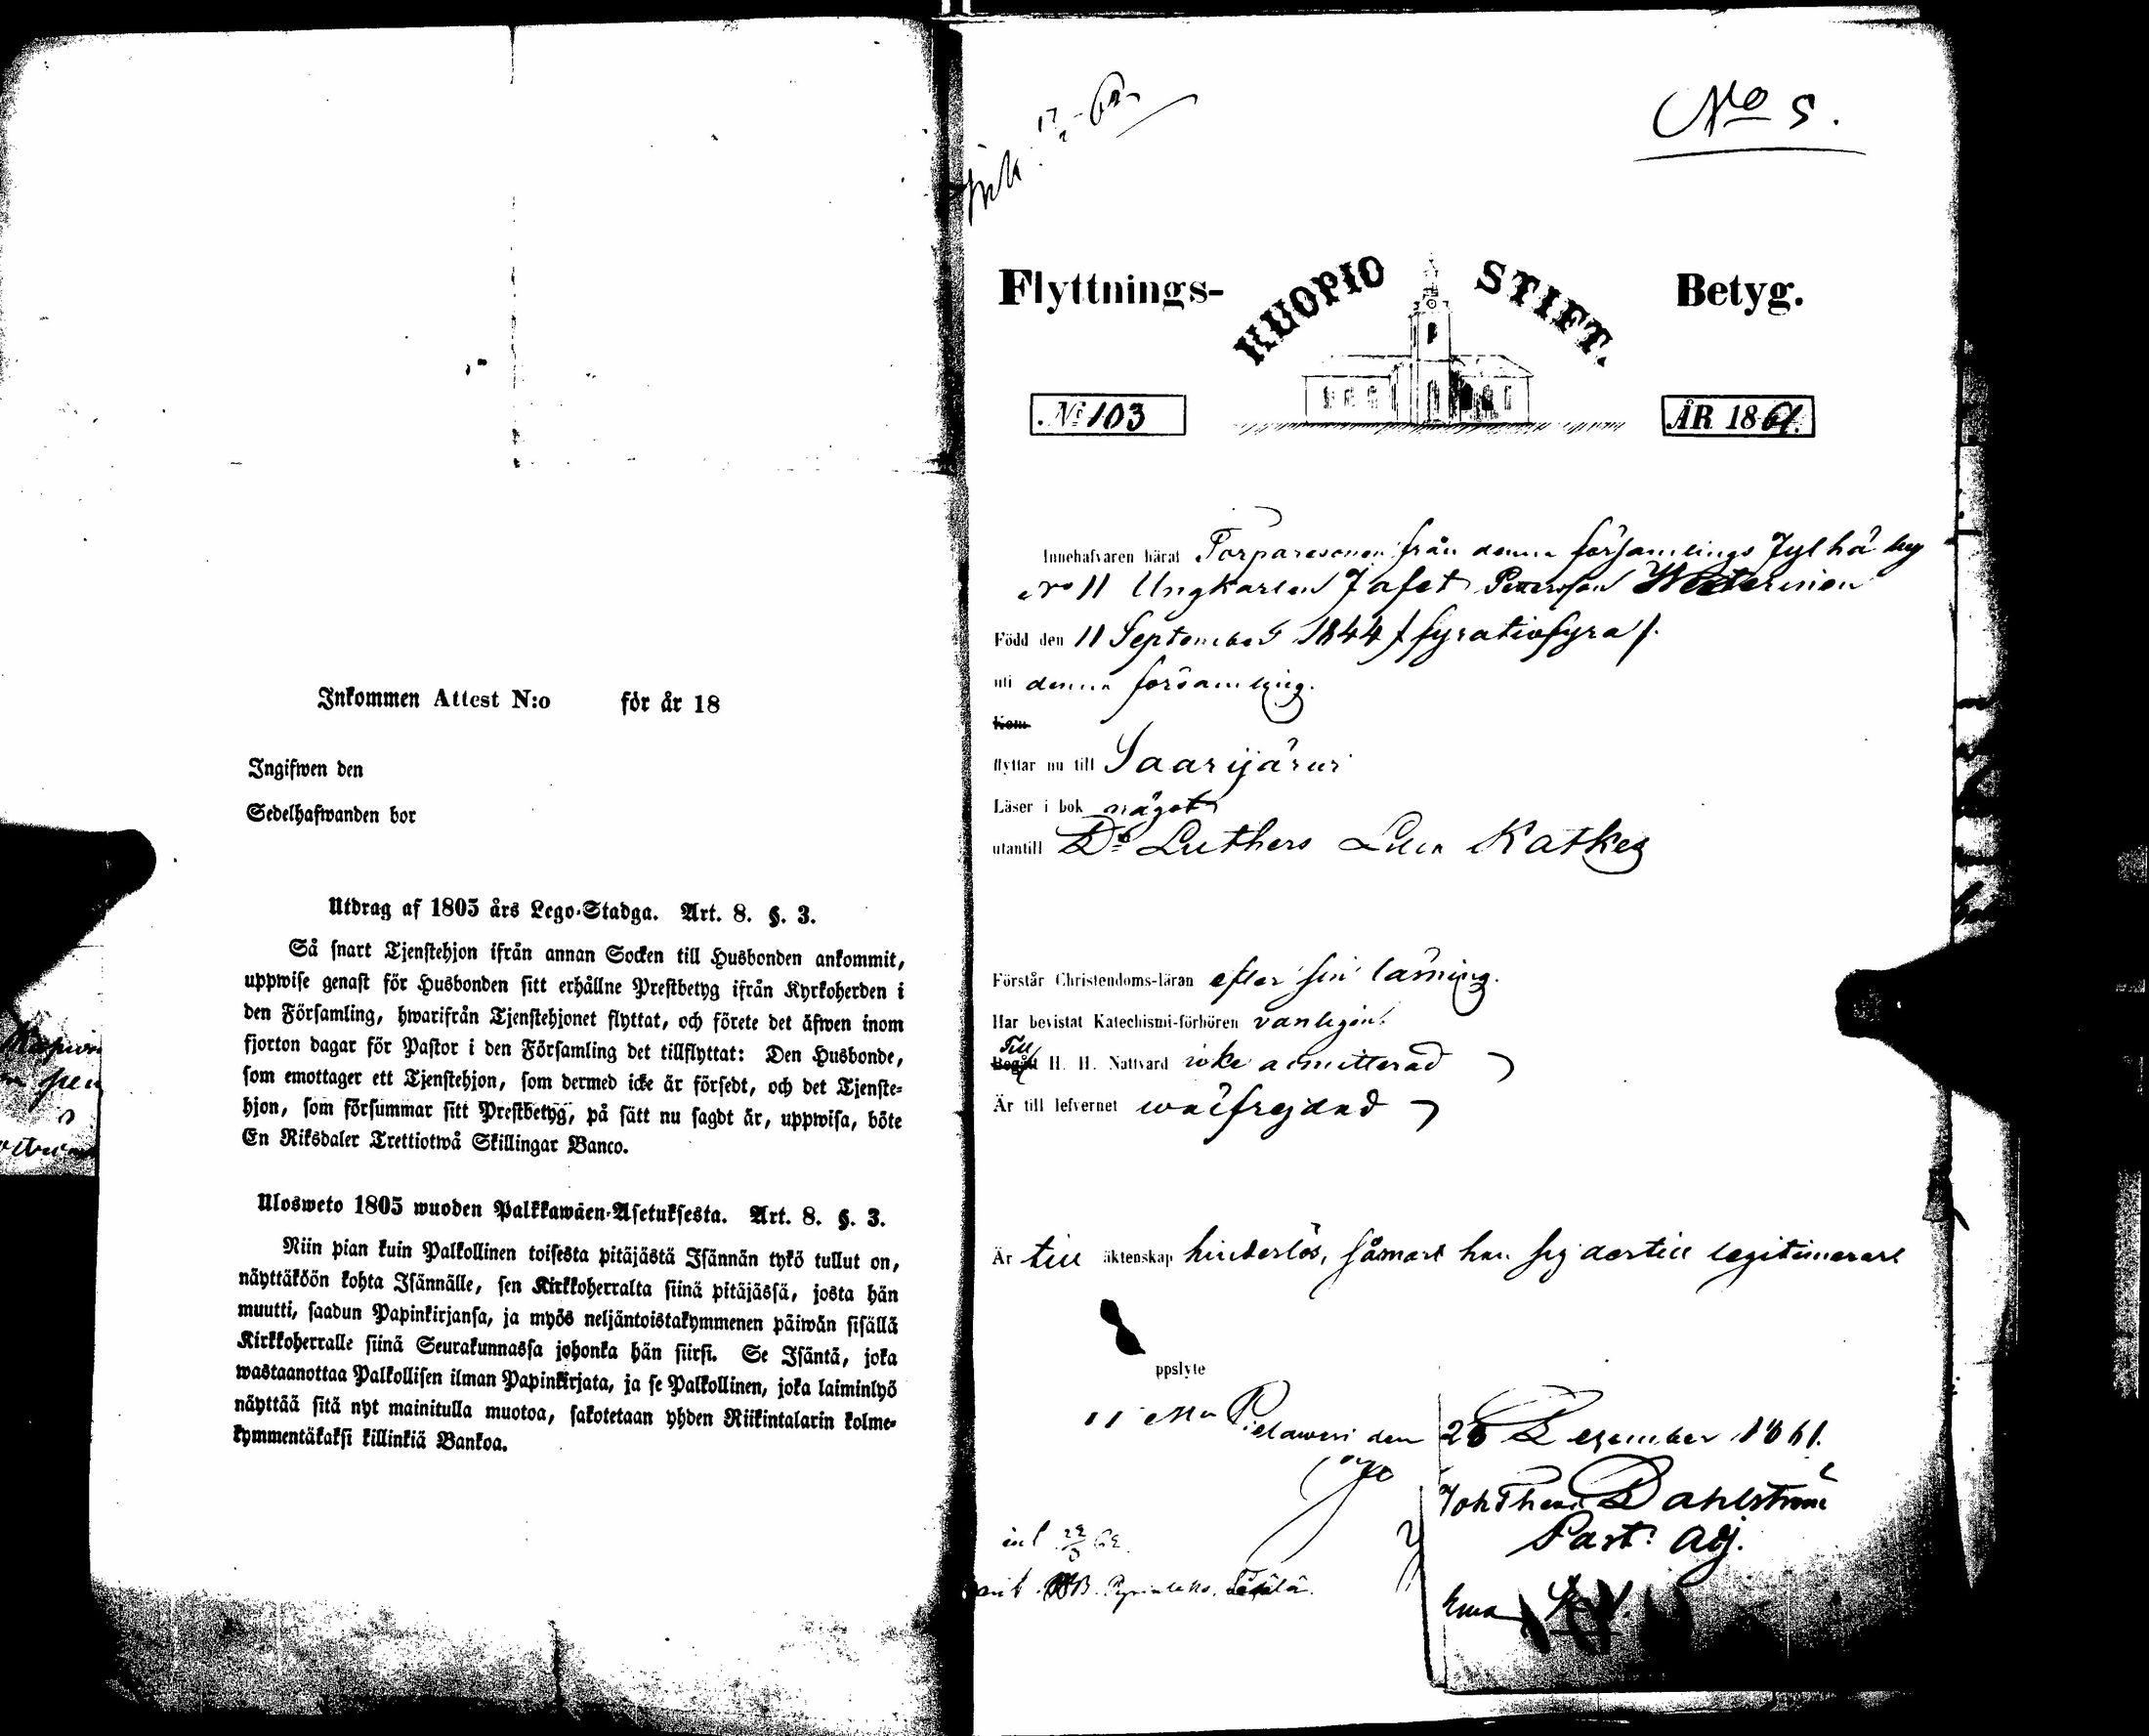 Inkommen Attest N:o för år 18
Ingifwen den
Sedelhafwanden bor
Utdrag af 1805 års Lego-Stadga. Art. 8. §. 3.
Så snart Tjenstehjon ifrån annan Socken till Husbonden ankommit,
uppwise genast för Husbonden sitt erhållne Prestbetyg ifrån Kyrkoherden i
den Församling, hwarifrån Tjenstehjonet flyttat, och förete det äfwen inom
fjorton dagar för Pastor i den Församling det tillflyttat: Den Husbonde,
som emottager ett Tjenstehjon, som dermed icke är försedt, och det Tjenste-
hjon, som försummar sitt Prestbetyg, på sätt nu sagdt är, uppwisa, böte
En Riksdaler Trettiotwå Skillingar Banco.
Ulosweto 1805 wuoden Palkkawäen-Asetuksesta. Art. 8. §. 3.
Niin pian kuin Palkollinen toisesta pitäjästä Isännän tykö tullut on,
näyttäköön kohta Isännälle, sen Kirkkoherralta siinä pitäjässä, josta hän
muutti, saadun Papinkirjansa, ja myös neljäntoistakymmenen päiwän sisällä
Kirkkoherralle siinä Seurakunnassa johonka hän siirsi. Se Isäntä, joka
wastaanottaa Palkollisen ilman Papinkirjata, ja se Palkollinen, joka laiminlyö
näyttää sitä nyt mainitulla muotoa, sakotetaan yhden Riikintalarin kolme-
kymmentäkaksi killinkiä Bankoa.
No 5.
Flyttnings- KUOPIO STIFT. Betyg.
No 103 ÅR 1861.
Innehafvaren härat Torparesonen från denna församlings Jylhä by
No 11 Ungkarlen Jafet Pettersson Westerinen
Född den 11 September 1844 /fyratiofyra/.
uti denna församling.
Kom
flyttar nu till Saarijärvi
Läser i bok något
utantill Dr Luthers Lilla Katkes
Förstår Christendoms-läran efter sin läsning.
Har bevistat Katechismi-förhören vanligen.
Till
Begått H. H. Nattvard icke admitterad
Är till lefvernet wälfrejdad
Är till äktenskap hinderlös, såvida han sig dertill legitimerar
ppslyte
Pielawesi den 28 December 1861.
Joh Dahlström
Past. Adj.